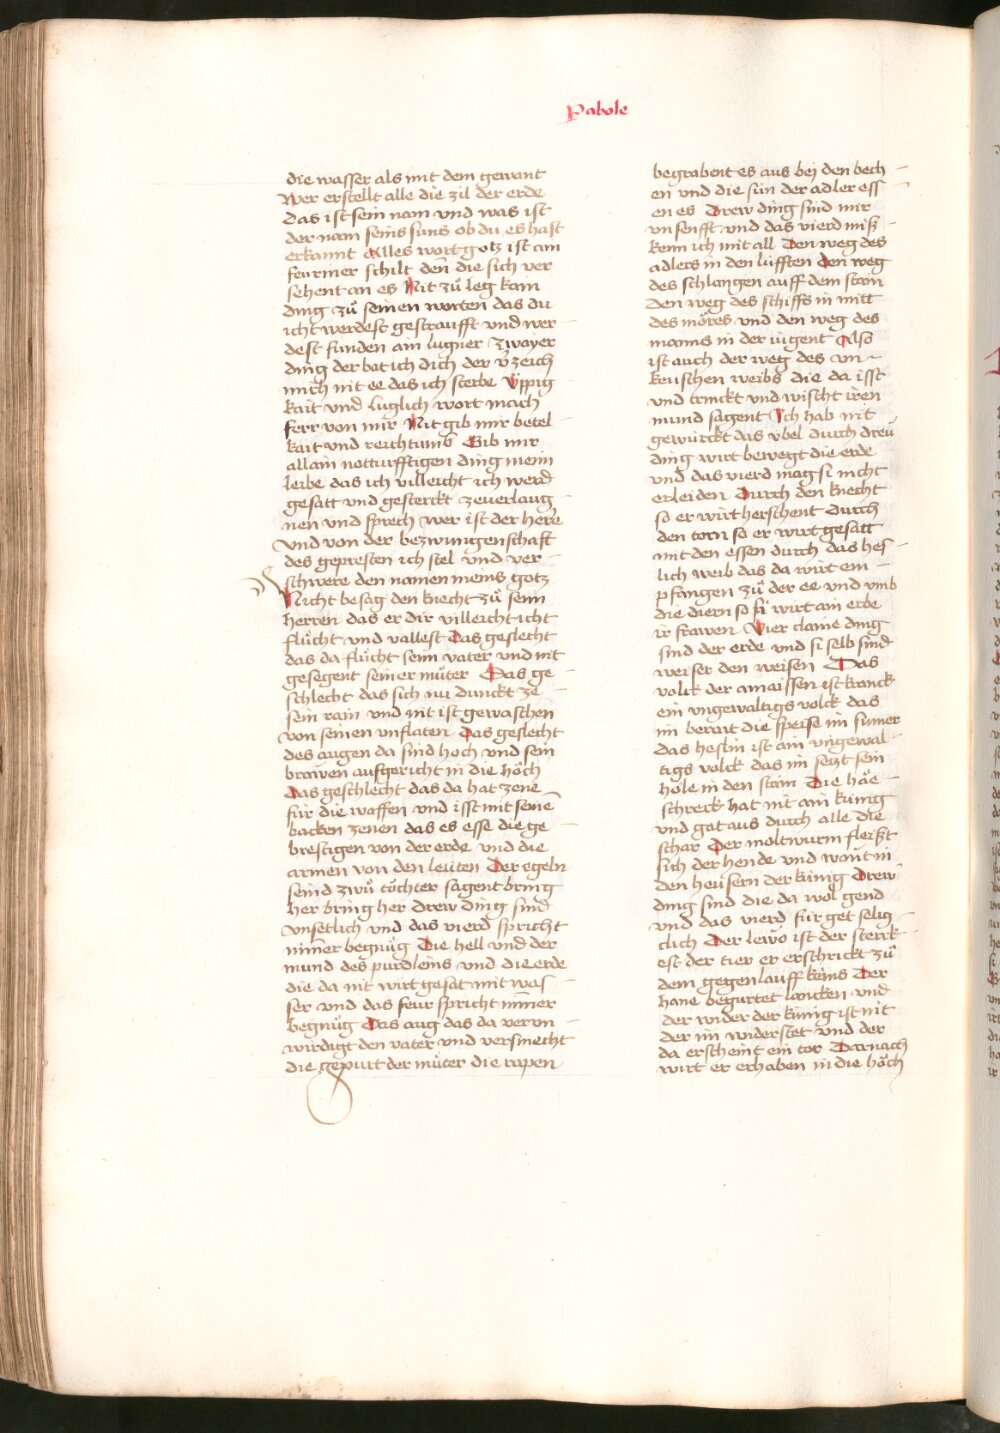 Pabole
die wasser als mit dem gewant
Wer erstellt alle die zil der erde
das ist sein nam und was ist
der nam seins suns ob du es hast
erkannt Alles wort gotz ist am
feurmer schilt den̄ die sich ver
sehent an es Nit zů leg kain
ding zů seinen worten das du
icht werdest gestraufft und wer
dest funden ain lugner Zwayer
ding der bat ich dich der v̄zeich
mich nit ee das ich sterbe Üppig
kait und luglich wort mach
ferr von mir Nit gib mir betel
kait und reichtums Gib mir
allain notturfftigen ding meim
leibe das ich villeicht ich werd
gesatt und gesterckt zeuerlaug
nen und sprech wer ist der here
und von der bezwingenschaft
des gepresten ich stel und ver
schwere den namen meins gotz
Nicht besag den knecht zů seim
herren das er dir villeicht icht
flůcht und vallest Das geslecht
das da flůcht seim vater und nit
gesegent seiner můter Das ge
schlecht das sich nu dunckt ze
sein rain und nit ist gewaschen
von seinen unflaten Das geslecht
des augen da sind hoch und sein
brawen aufgericht in die höch
Das geschlecht das da hat zene
für die waffen und isst mit seinē
backen zenen das es esse die ge
brestigen von der erde und die
armen von den leüten Der egeln
seind zwů töchter sagent bring
her bring her drew ding sind
unsetlich und das vierd spricht
nim̄er begnůg Die hell und der
mund des purdleins und die erde
die da nit wirt gesat mit was
ser und das feur spricht nim̄er
begnůg Das aug das da verun
wirdigt den vater und versmecht
die gepurt der můter die rapen
begrabent es aus bej den bech
en und die sün der adler ess
en es Drew ding sind mir
unsenfft und das vierd miß
kenn ich mit all Den weg des
adlers in den lüfften den weg
des schlangen auff dem stain
den weg des schiffs in mitt
des möres und den weg des
manns in der iugent Also
ist auch der weg des un
keuschen weibs die da isst
und trinckt und wischt iren
mund sagent Ich hab nit
gewürckt das übel durch dreü
ding wirt bewegt die erde
und das vierd mag si nicht
erleiden Durch den knecht
so er wirt herschent durch
den torn so er wirt gesatt
mit den essen durch das hes
lich weib das da wirt em
pfangen zů der ee und umb
die diern so si wirt ain erbe
ir frawen Vier claine ding
sind der erde und si selb sind
weiser den weisen Das
volck der amaissen ist kranck
ein ungewaltigs volck das
im berait die speise im sumer
das heslin ist ain ungewal
tigs volck das im setzt sein
hole in den stain Die häe
schreck hat nit ain künig
und gat aus durch alle die
schar Der moltwurm fleißt
sich der hende und wont in
den heusern der künig Drew
ding sind die da wol gend
und das vierd für get selig
clich Der lewo ist der sterck
est der tier er erschrickt zů
dem gegenlauff keins Der
hane begurtet lancken und
der wider der künig ist nit
der im widerstet und der
da erscheint ein tor Darnach
wirt er erhaben in die höch